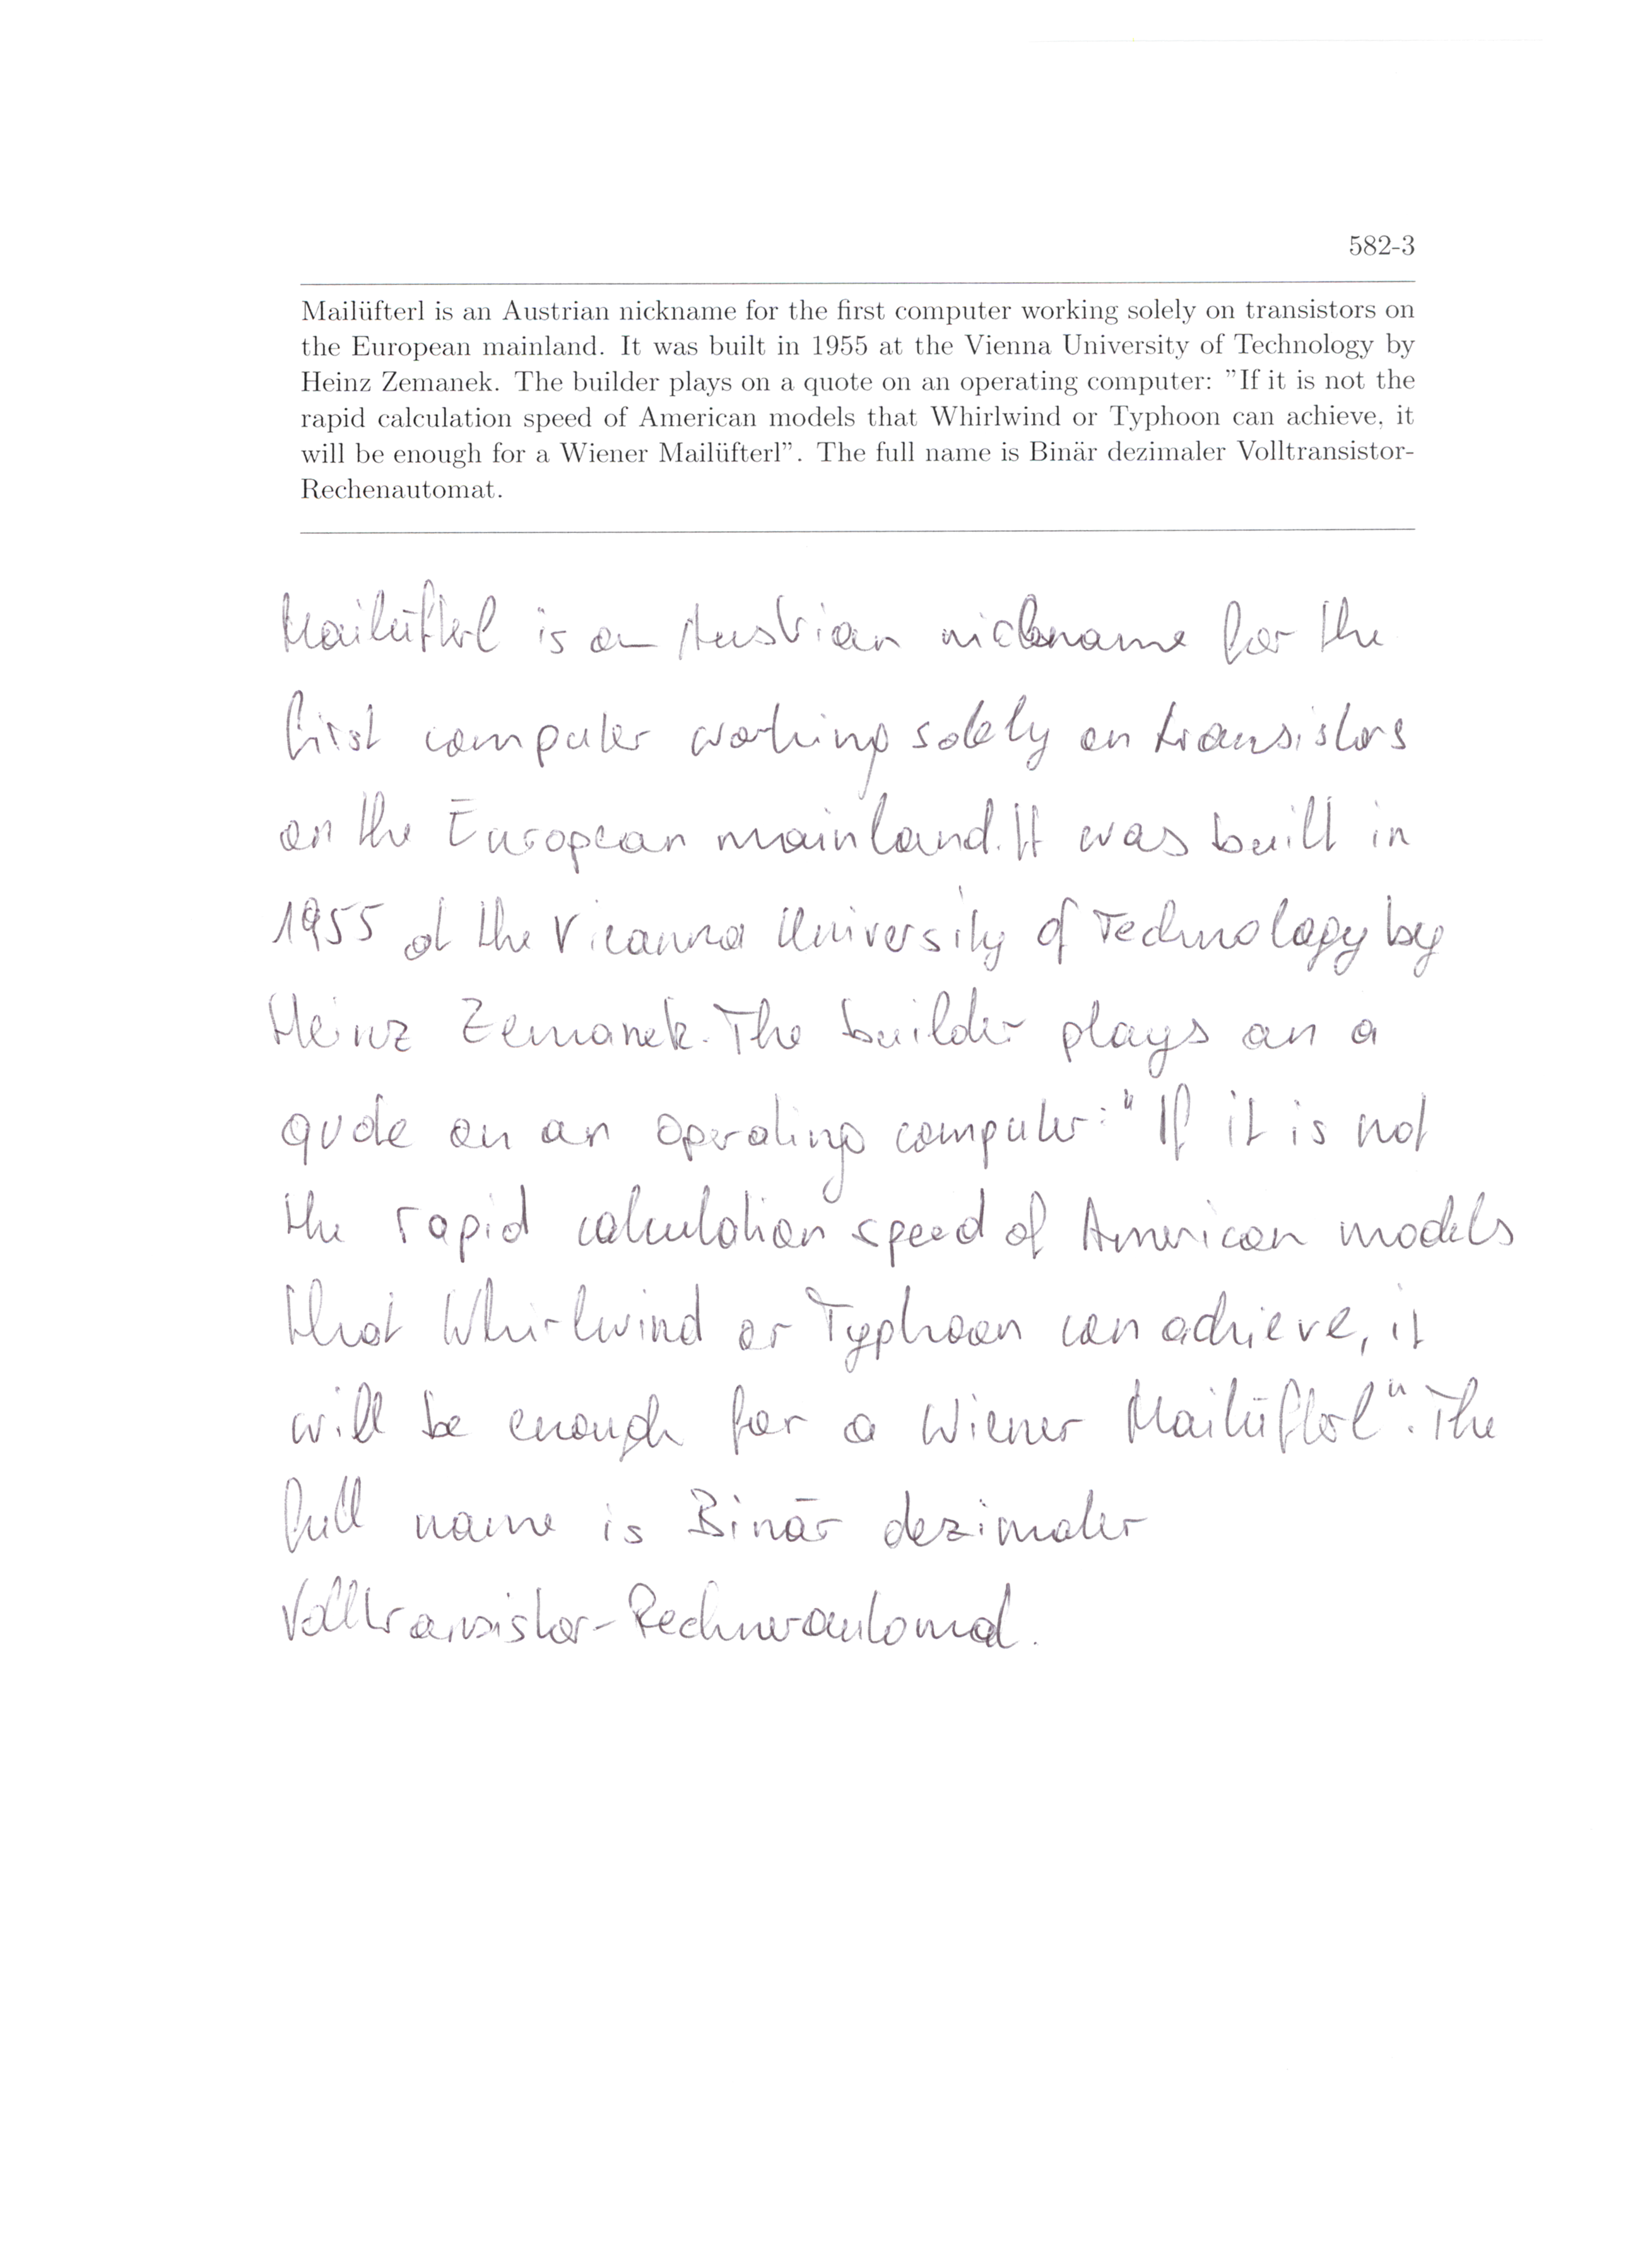 582-3
Mailüfterl is an Austrian nickname for the first computer working solely on transistors on
the European mainland. It was built in 1955 at the Vienna University of Technology by
Heinz Zemanek. The builder plays on a quote on an operating computer: ”If it is not the
rapid calculation speed of American models that Whirlwind or Typhoon can achieve, it
will be enough for a Wiener Mailüfterl”. The full name is Binär dezimaler Volltransistor-
Rechenautomat.
Mailüfterl is an Austrian nickname for the
first computer working solely on transistors
on the European mainland. It was built in
1955 at the Vieanna University of Technology by
Heinz Zemanek. The builder plays on a
quote on an operating computer: "If it is not
the rapid calculation speed of American models
that Whirlwind or Typhoon can achieve, it
will be enough for a Wiener Mailüfterl". The
full name is Binär dezimaler
Volltransistor-Rechnerautomat.